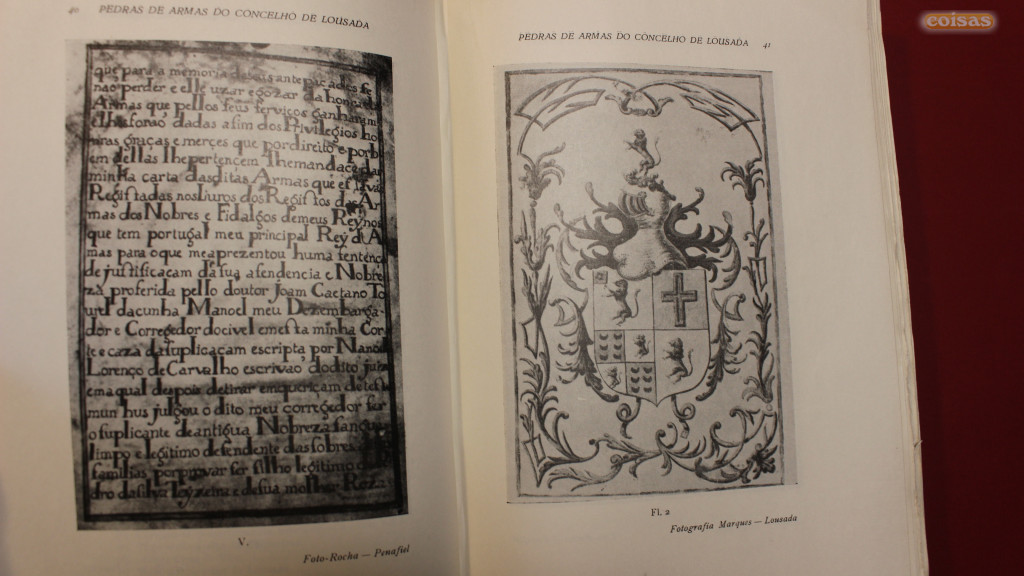 40 PEDRAS DE ARMAS DO CONCELHO DE LOUSADA
que para a memoria de seus antepaçados se
naõ perder e elle uzar e gozar da honra das
Armas que pellos seus serviços ganharam
e lhes foraõ dadas asim dos Privilegios hon
rras graças e merçes que por direito e por b
em dellas lhe pertencem lhe mandace dar
minha carta das ditas Armas que estavaõ
Registadas nos livros dos Registos das Ar
mas dos Nobres e Fidalgos de meus Reynos
que tem portugal meu principal Rey d'A
mas para o que me aprezentou huma sentença
de justificacam da sua asendencia e Nobre
za proferida pello doutor Joam Caetano To
rel da cunha Manoel meu Dezembarga
dor e Corregedor do civel em esta minha Cor
te e caza da suplicaçam escripta por
Lorenço de Carvalho escrivaõ do dito juizo
em a qual despois de tirar emquericam de tes
munhus julgou o dito meu corregedor ser
o suplicante de antigua Nobreza sangue
limpo e legitimo defendente das sobre
familias por provar ser filho legitimo de
dro da silva e de sua
V.
Foto-Rocha — Penafiel
PEDRAS DE ARMAS DO CONCELHO DE LOUSADA 41
Fl. 2
Fotografia Marques — Lousada
coisas